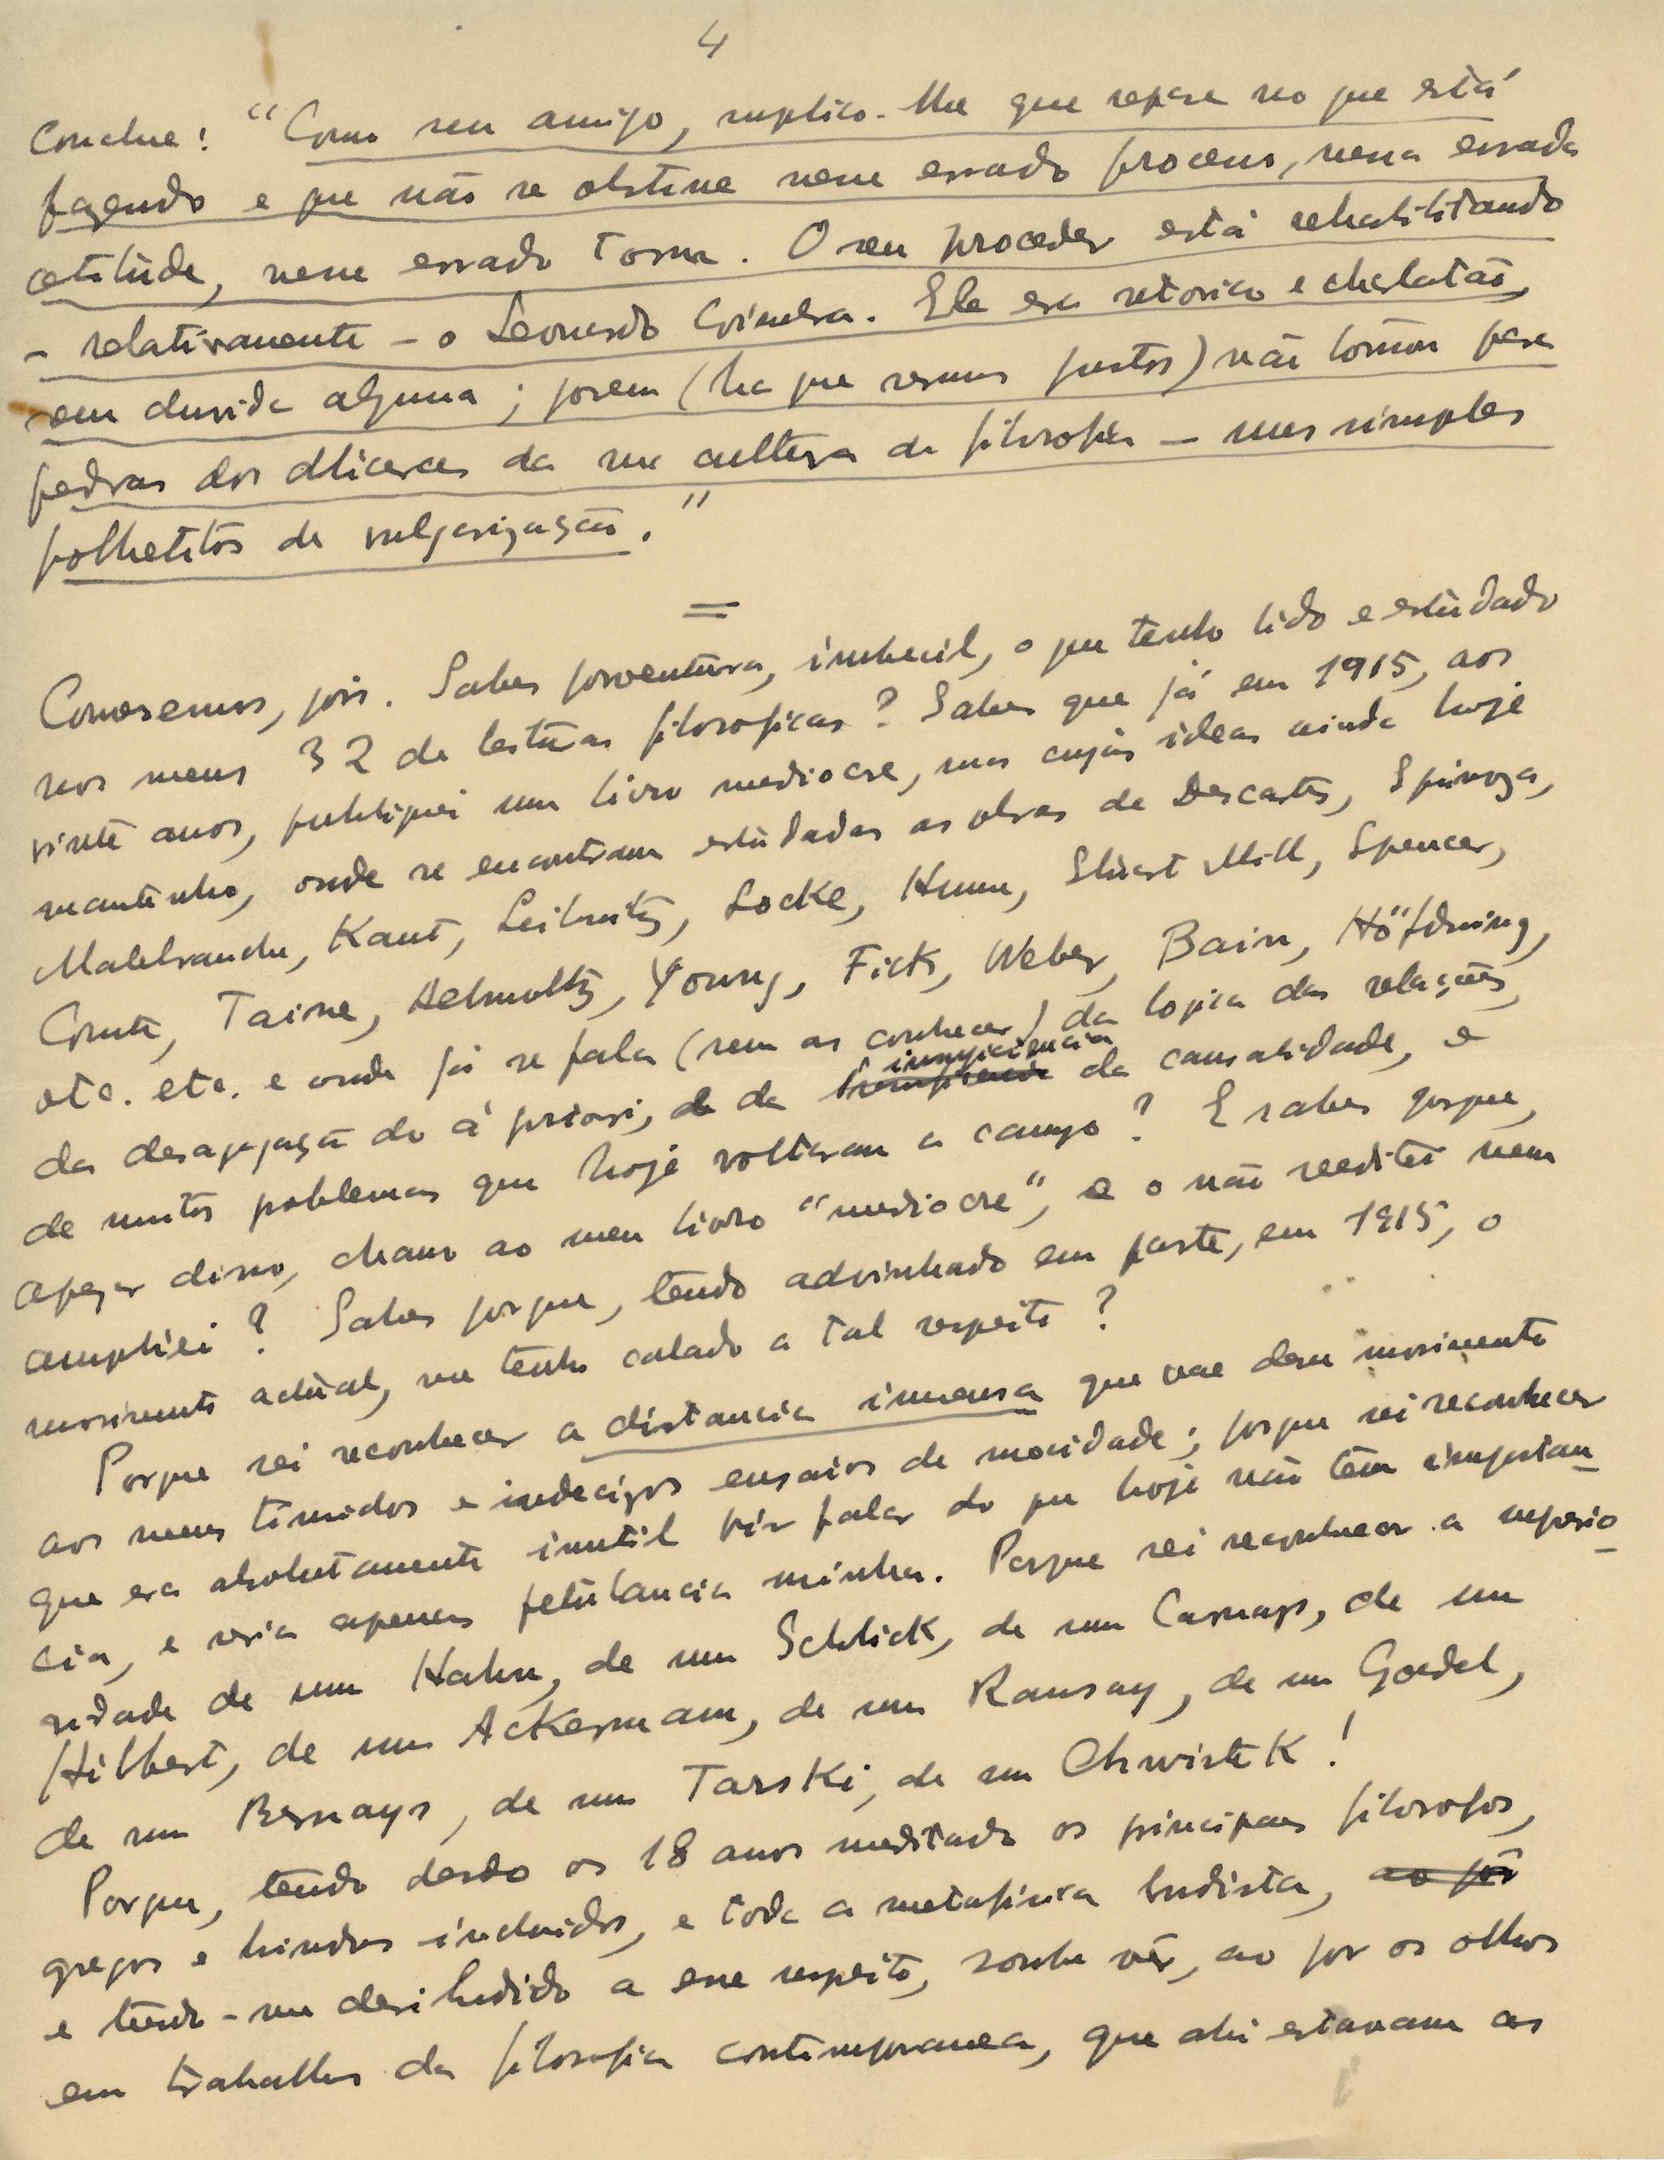 4
Conclue: "Como seu amigo, suplico-lhe que repare no que está
fazendo e que não se obstine nesse errado processo, nessa errada
atitude, nesse errado tom. O seu proceder está rehabilitando
- relativamente - o Leonardo Coimbra. Ele era retorico e charlatão,
sem duvida alguma; porem (ha que sermos justos) não tomou para
pedras dos alicerces da sua cultura de filosofia - uns simples
folhetitos de vulgarização."
=
Comecemos, pois. Sabes porventura, imbecil, o que tenho lido e estudado
nos meus 32 de leituras filosoficas? Sabes que já em 1915, aos
vinte anos, publiquei um livro mediocre, mas cujas ideas ainda hoje
mantenho, onde se encontram estudadas as obras de Descartes, Spinoza,
Malebranche, Kant, Leibnitz, Locke, Hume, Stuart Mill, Spencer,
Comte, Taine, Helmoltz, Young, Fick, Weber, Bain, Höffdning,
etc. etc. e onde já se fala (sem as conhecer) da logica das relações,
da desagregação do á priori, da insuficiencia da causalidade, e
de muitos problemas que hoje voltaram a campo? E sabes porque,
apezar disso, chamo ao meu livro "mediocre", e o não reeditei nem
ampliei? Sabes porque, tendo advinhado em parte, em 1915, o
movimento actual, me tenho calado a tal respeito?
Porque sei reconhecer a distancia imensa que vae desse movimento
aos meus timidos e indecizos ensaios de mocidade; porque sei reconhecer
que era absolutamente inutil vir falar do que hoje não tem importan-
cia, e seria apenas petulancia minha. Porque sei reconhecer a superio-
ridade de um Hahn, de um Schlick, de um Carnap, de um
Hilbert, de um Ackermann, de um Ramsay, de um Goedel,
de um Bernays, de um Tarski, de um Chwistek!
Porque, tendo desde os 18 anos meditado os principaes filosofos,
gregos e hindus incluidos, e toda a metafisica budista, ao pôr
e tendo-me desiludido a esse respeito, soube vêr, ao por os olhos
em trabalhos da filosofia contemporanea, que ahi estavam as